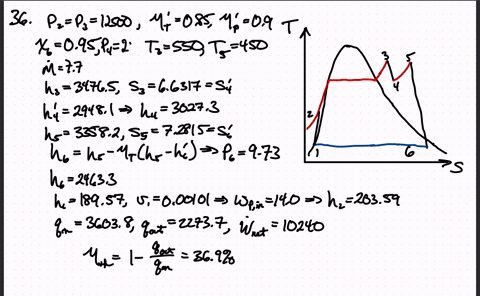 36. P₂=P₃=12500, η'_T=0.85, η'_P=0.9
x₆=0.95, P₄=2· T₃=550, T₅=450
ṁ=7.7
h₃=3476.5, S₃=6.6317=S₄'
h₄'=2948.1 ⇒ h₄=3027.3
h₅=3358.2, S₅=7.2815=S₆'
h₆=h₅-η_T(h₅-h₆') ⇒ P₆=9.73
h₆=2463.3
h₁=189.57, v₁=0.00101 ⇒ w_p,in=14.0 ⇒ h₂=203.59
q_in=3603.8, q_out=2273.7, Ẇ_net=10240
η_th = 1 - q_out/q_in = 36.9%
T
3
5
4
2
1
6
S